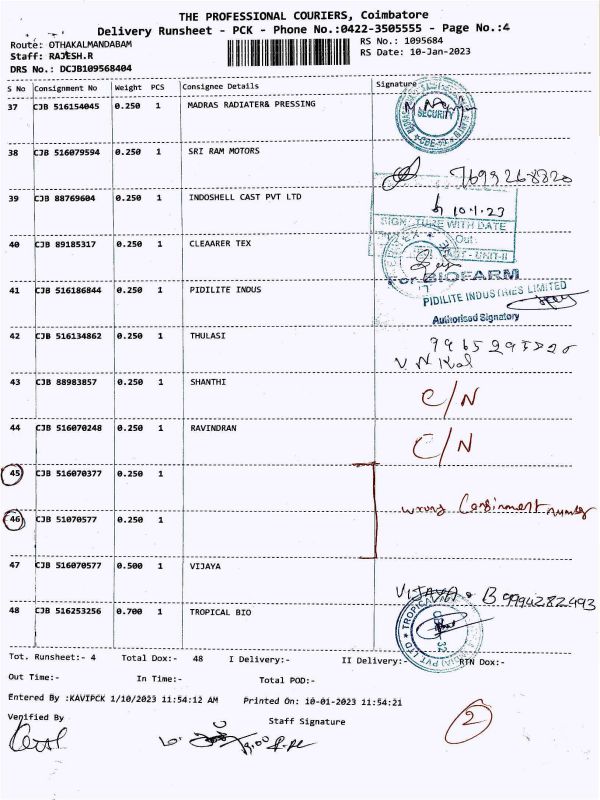 THE PROFESSIONAL COURIERS, Coimbatore
Delivery Runsheet - PCK - Phone No.:0422-3505555 - Page No.:4
Route: OTHAKALMANDABAM
RS No.: 1095684
Staff: RAJESH.R
RS Date: 10-Jan-2023
DRS No.: DCJB109568404
S No Consignment No Weight PCS Consignee Details Signature
37 CJB 516154045 0.250 1 MADRAS RADIATER& PRESSING
SECURITY
38 CJB 516079594 0.250 1 SRI RAM MOTORS
39 CJB 88769604 0.250 1 INDOSHELL CAST PVT LTD
10.1.23
SIGNATURE WITH DATE
Out:
UNIT-II
40 CJB 89185317 0.250 1 CLEAARER TEX
For BIOFARM
41 CJB 516186844 0.250 1 PIDILITE INDUS
PIDILITE INDUSTRIES LIMITED
Authorised Signatory
42 CJB 516134862 0.250 1 THULASI
43 CJB 88983857 0.250 1 SHANTHI C/N
44 CJB 516070248 0.250 1 RAVINDRAN C/N
45 CJB 516070377 0.250 1
wrong Consinment number
46 CJB 51070577 0.250 1
47 CJB 516070577 0.500 1 VIJAYA
VIJAYA . B 9994282493
48 CJB 516253256 0.700 1 TROPICAL BIO
TROPICAL
PVT LTD
Tot. Runsheet:- 4 Total Dox:- 48 I Delivery:- II Delivery:- RTN Dox:-
Out Time:- In Time:- Total POD:-
Entered By :KAVIPCK 1/10/2023 11:54:12 AM Printed On: 10-01-2023 11:54:21
Verified By Staff Signature
2